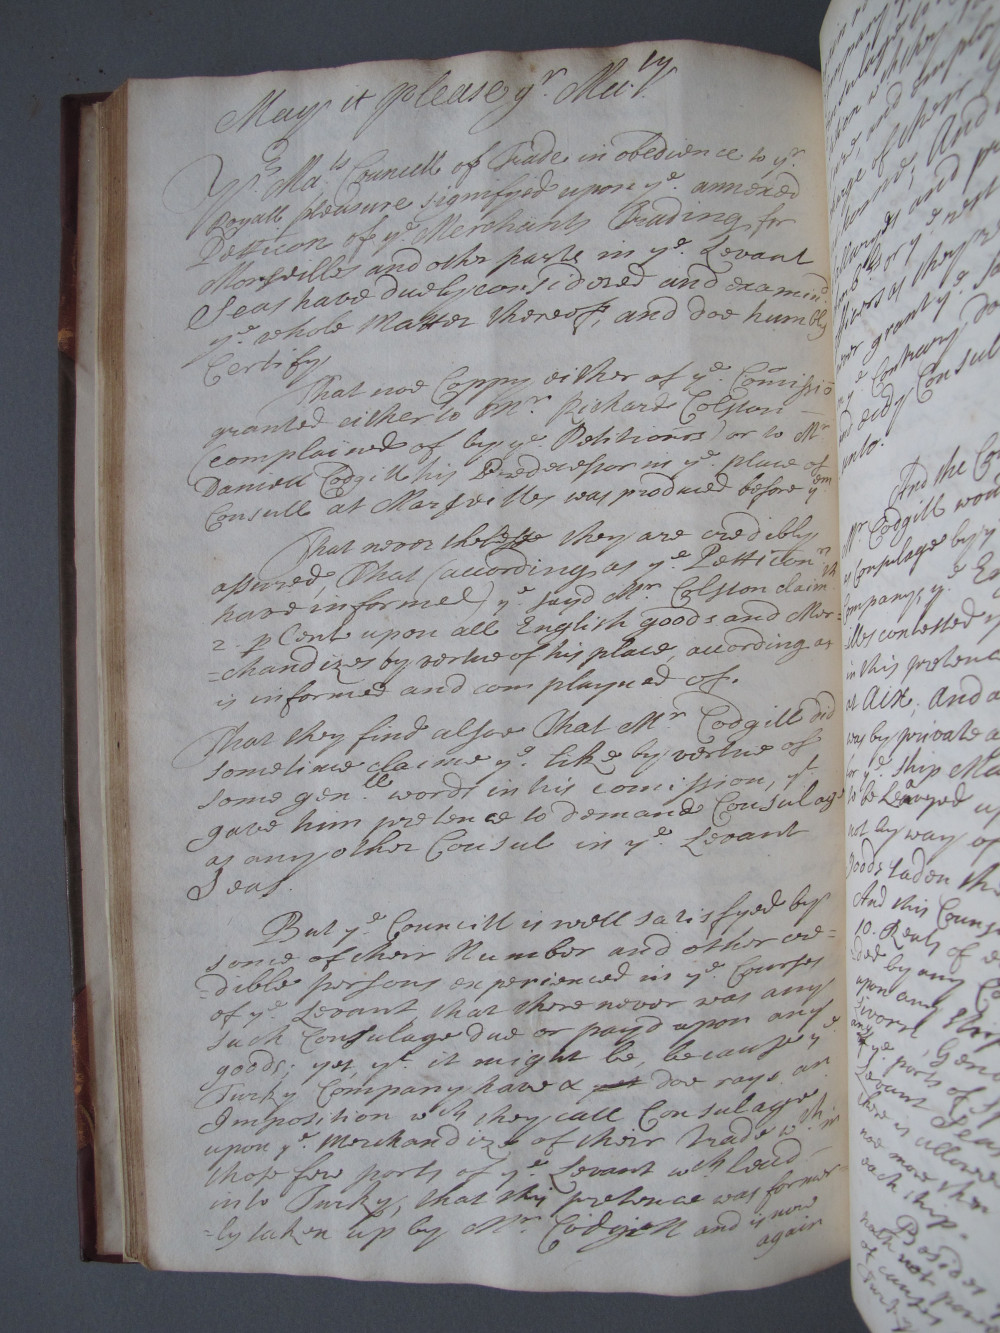 May it please yr. Ma.ty
Yr. Ma.ts Councill of Trade in obedience to yr.
Royall pleasure signifyed upon ye. annexed
Petticon of ye. Merchants Trading for
Morseilles and other parts in ye. Levant
Seas have duely considered and examin.d
ye. whole Matter thereof, and doe humbly
Certify
That noe Coppy either of ye. Comissiō
granted either to Mr. Richard Colston
(complained of by ye. Petitionrs) or to Mr.
Daniell Codgill his Predecessor in ye. place of
Consull at Marseilles was produced before ym
That never thelesse they are credibly
assured, That (according as ye. Petticonrs
have informed) ye. sayd Mr. Colston claimth
2 p Cent upon all English goods and Mer-
=chandizes by vertue of his place, according as
is informed and complayned of.
That they find alsoe That Mr. Codgill did
sometime claime ye. like by vertue of
some gen.ll words in his comission, yt.
gave him pretence to demand Consulage
as any other Consul in ye. Levant
Seas.
But ye. Councill is well satissfyed by
some of their Number and other cre=
=dible persons experienced in ye. Courses
of ye. Levant, that there never was any
such Consulage due or payd upon any
goods; yet, yt. it might be, because ye.
Turky Company have & doe rayse an
Imposition wch they call Consulage
upon ye. Merchandize of their Trade wthin
those few ports of ye. Levant wch lead
into Turky, that this pretence was former=
=ly taken up by Mr. Codgill and is now
again
And the Co
Mr. Codgill wou
as Consulage by y
Company, ye. En
illes contested
in this pretence
at Aix, And a
was by private a
for ye. ship Ma
to be Leavyed u
not by way of
Goods laden th
And this Counsi
10. Reals of e
=ded by any Co
upon any Ship
Livorn, Geno
any
of ye. ports of S
Levant Seas
there is allowed
noe more then
each ship.
Besides
hath not
of
Turky